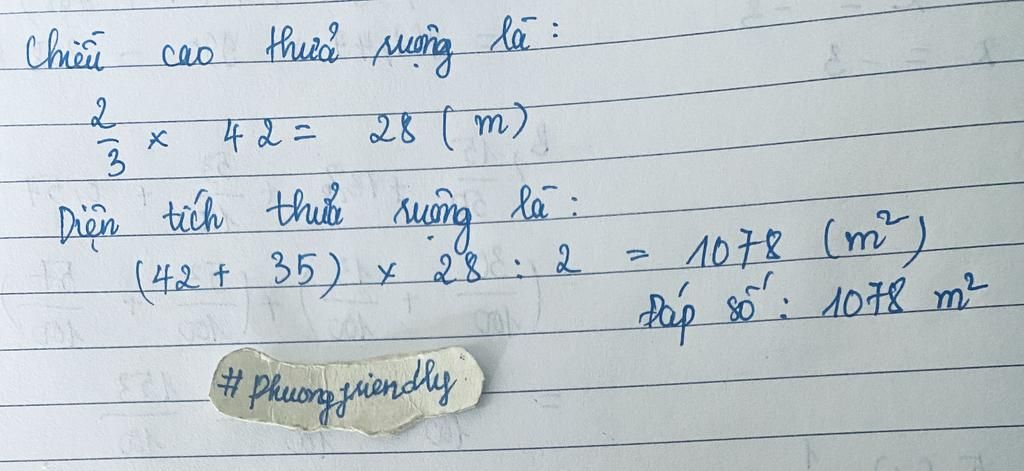 Chiều cao thửa ruộng là:
2/3 × 42 = 28 (m)
Diện tích thửa ruộng là:
(42 + 35) × 28 : 2 = 1078 (m²)
Đáp số: 1078 m²
#Phuongfriendly